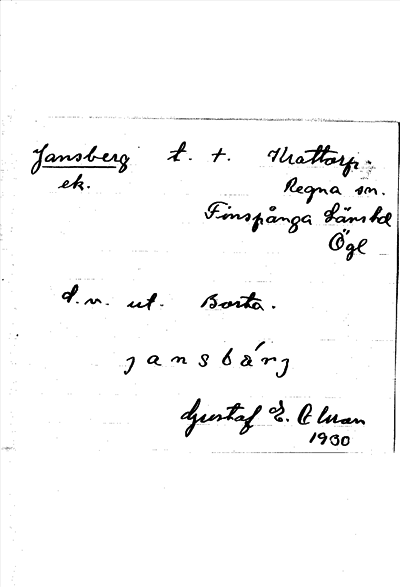 Jansberg t. t. Krattorp.
ek. Regna sn.
Finspånga länshd
Ögl
d.v. ut. Borta.
jansbárj
Gustaf E. Alvan
1930